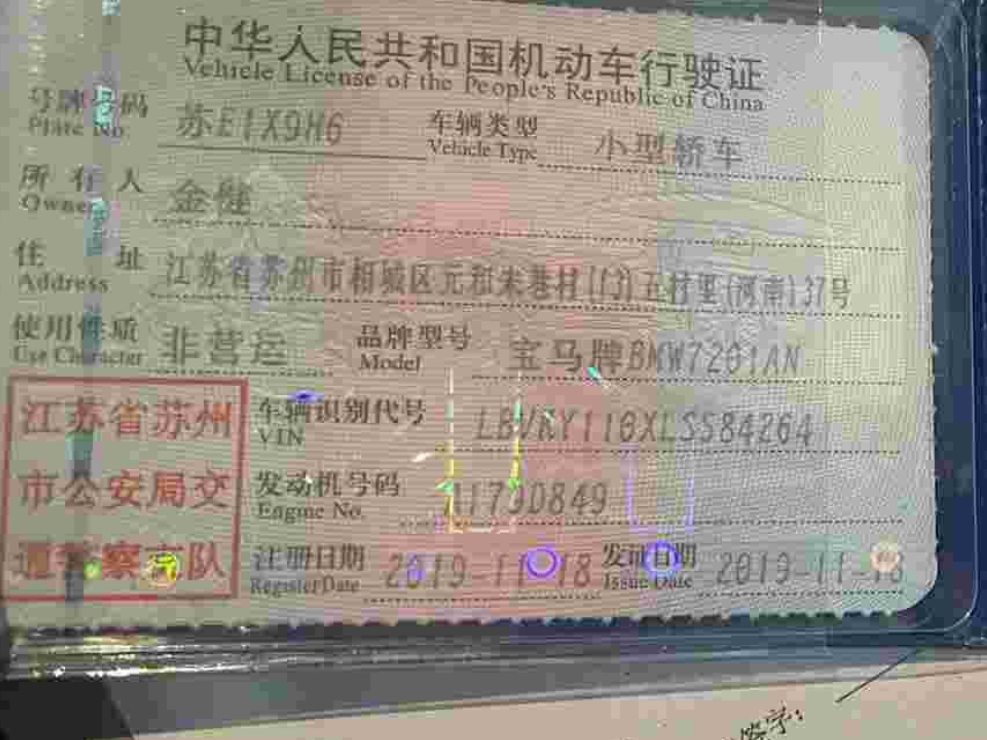 中华人民共和国机动车行驶证
Vehicle License of the People's Republic of China
号牌号码 苏E1X9H6 车辆类型 小型轿车
Plate No. Vehicle Type
所有人 金健
Owner
住址 江苏省苏州市相城区元和朱巷村(13)五村里(河南)37号
Address
使用性质 非营运 品牌型号 宝马牌BMW7201AN
Use Character Model
江苏省苏州 车辆识别代号 LBVKY110XLSS84264
VIN
市公安局交 发动机号码 A179D849
Engine No.
通警察支队 注册日期 2019-11-18 发证日期 2019-11-18
Register Date Issue Date